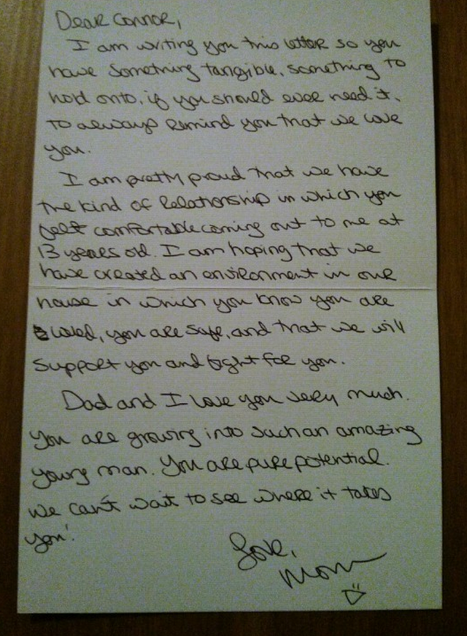 Dear Connor,
I am writing you this letter so you
have something tangible, something to
hold onto, if you should ever need it,
to always remind you that we love
you.
I am pretty proud that we have
the kind of relationship in which you
felt comfortable coming out to me at
13 years old. I am hoping that we
have created an environment in our
house in which you know you are
loved, you are safe, and that we will
support you and fight for you.
Dad and I love you very much.
You are growing into such an amazing
young man. You are pure potential.
We can't wait to see where it takes
you!
Love,
Mom